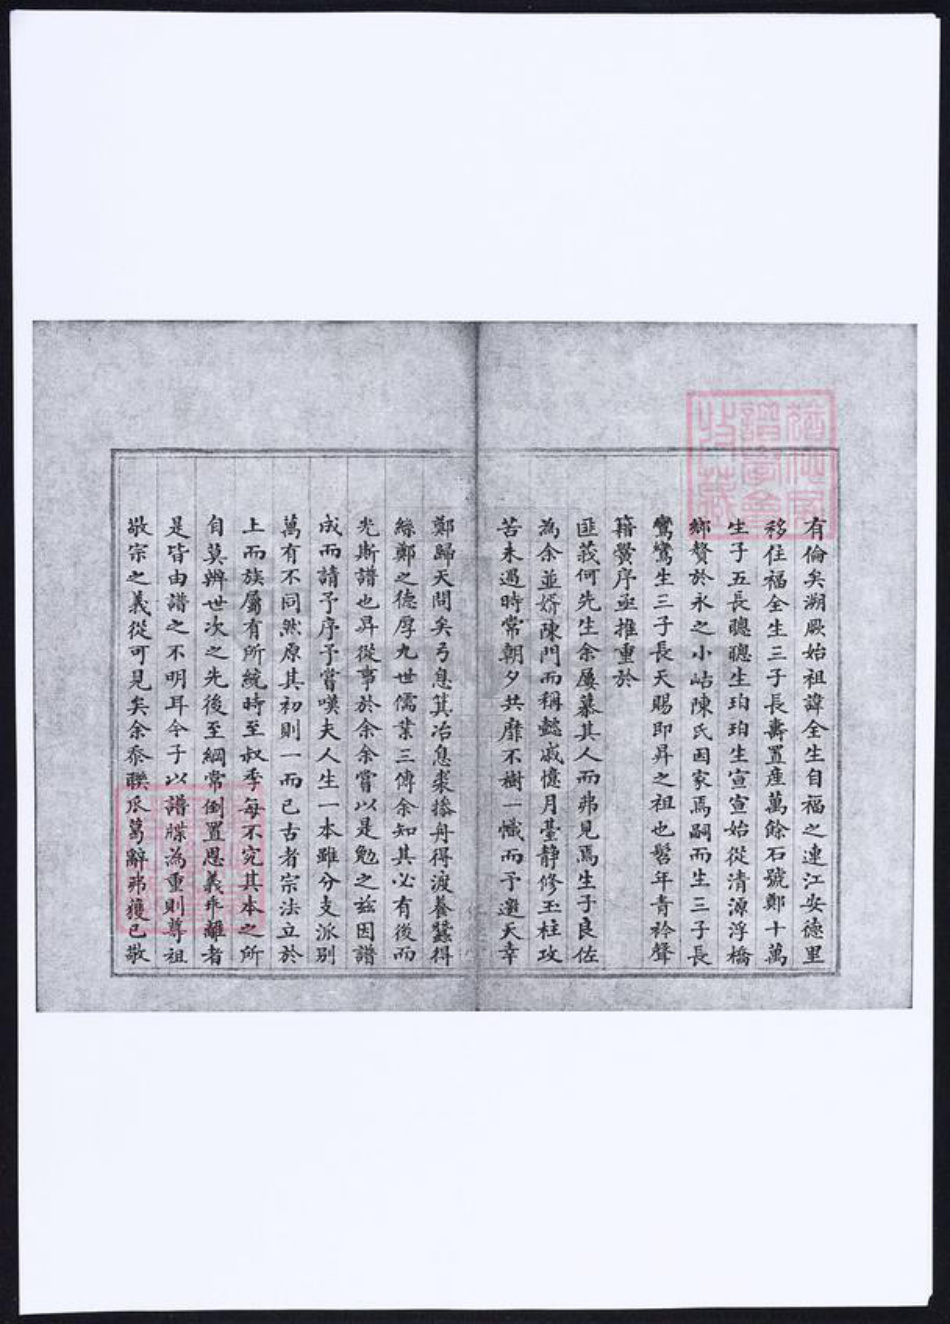 有倫矣溯厥始祖諱全生自福之連江安德里
移住福全生三子長壽置産萬餘石號鄭十萬
生子五長聰聰生珀珀生宣宣始從清源浮橋
鄉贅於永之小岵陳氏因家焉嗣而生三子長
鸞鸞生三子長天賜即昇之祖也髫年青衿聲
籍黌序亟推重於
匪莪何先生余屢慕其人而弗見焉生子良佐
為余並婿陳門而稱懿戚憶月臺静修玉柱攻
苦未遇時常朝夕共靡不樹一幟而予邀天幸
鄭歸天問矣弓息箕冶息裘捺舟得渡養蠶得
絲鄭之德厚九世儒業三傳余知其必有後而
光斯譜也昇從事於余余嘗以是勉之玆因譜
成而請予序予嘗嘆夫人生一本雖分支派别
萬有不同然原其初則一而已古者宗法立於
上而族屬有所統時至叔季每不究其本之所
自莫辨世次之先後至綱常倒置恩義乖離者
是皆由譜之不明耳今子以譜牒為重則尊祖
敬宗之義從可見矣余忝聯瓜葛辭弗獲已敬